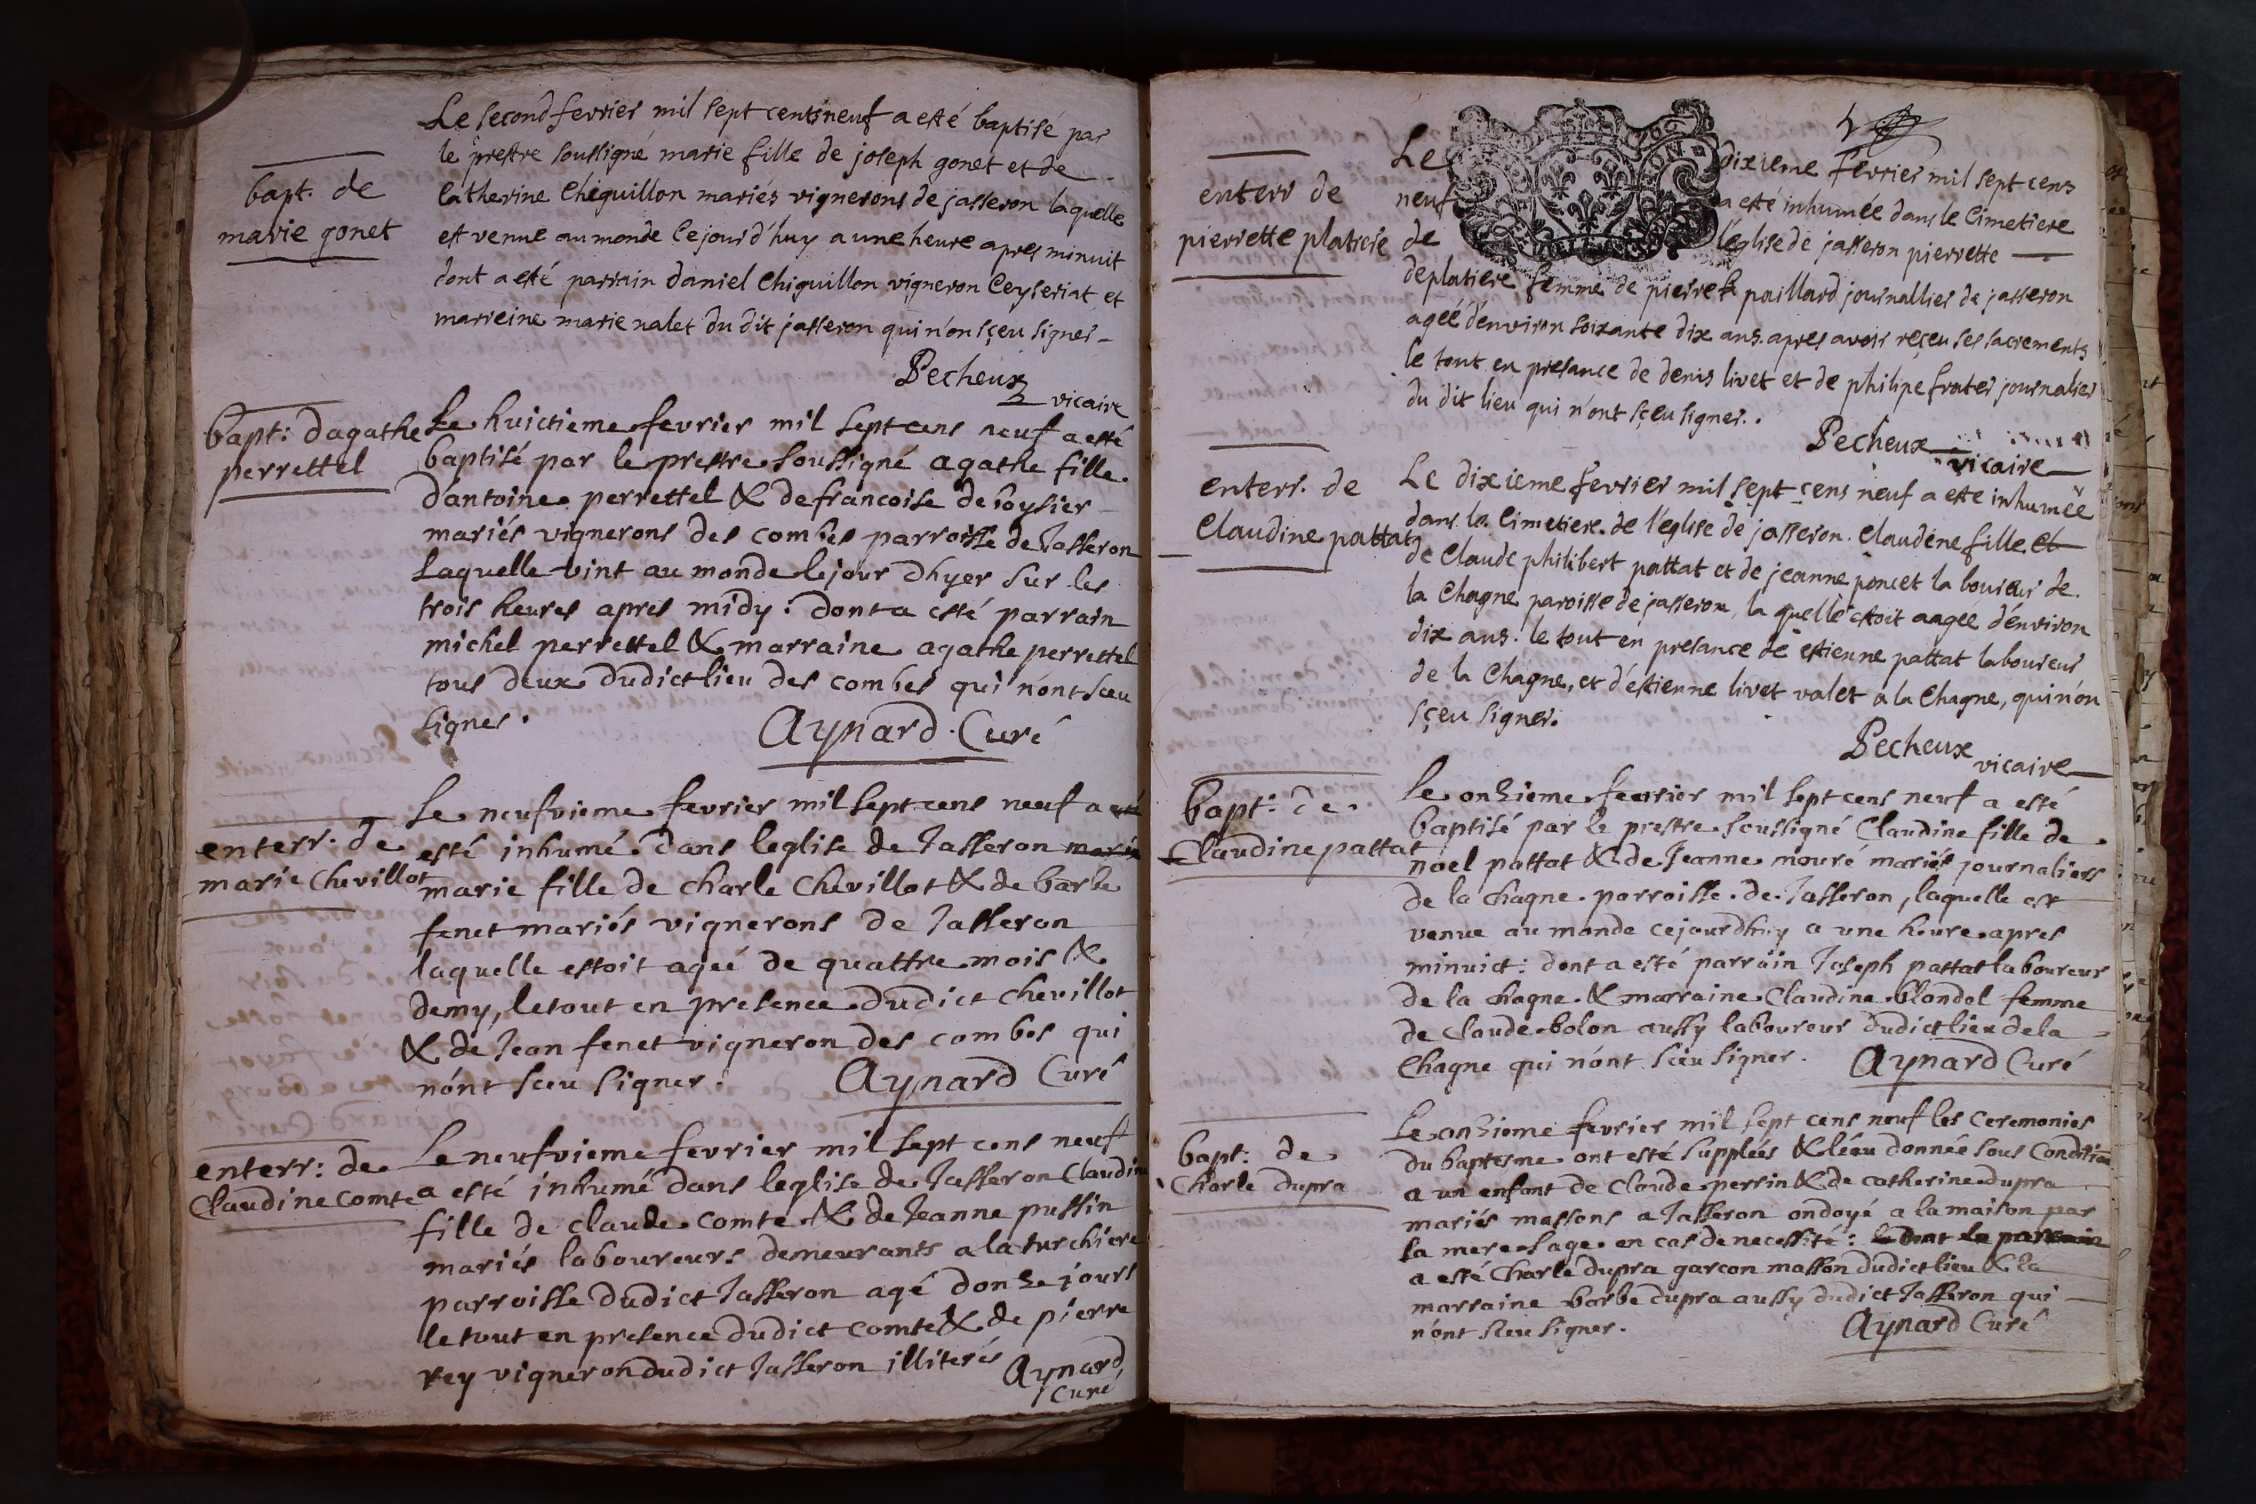 bapt. de
marie gonet
Le second fevrier mil sept cents neuf a esté baptisé par
le prestre soussigné marie fille de joseph gonet et de
Catherine Chiquillon mariés vignerons de jasseron laquelle
est venue au monde cejourd'huy a une heure apres minuit
dont a esté parrain daniel Chiquillon vigneron Ceyseriat et
marreine marie nalet du dit jasseron qui n'on sçeu signer
Pecheux
vicaire
bapt: dagathe
perrettel
Le huictieme fevrier mil sept cens neuf a esté
baptisé par le prestre soussigné agathe fille
dantoine perrettel & de francoise de boysier
mariés vignerons des combes parroisse de Jasseron
laquelle vint au monde le jour dhyer sur les
trois heures apres midy: dont a esté parrain
michel perrettel & marraine agathe perrettel
tous deux dudict lieu des combes qui n'ont sceu
signer.
Aynard Curé
enterr. de
marie Chevillot
Le neufvieme fevrier mil sept cens neuf a
esté inhumé dans leglise de Jasseron marie
marie fille de charle Chevillot & de barbe
fenet mariés vignerons de Jasseron
laquelle estoit ageé de quattre mois &
demy, le tout en presence dudict chevillot
& de Jean fenet vigneron des combes qui
n'ont sceu signer.
Aynard Curé
enterr: de
Claudine comte
Le neufvieme fevrier mil sept cens neuf
a esté inhumé dans leglise de Jasseron Claudine
fille de claude comte & de Jeanne pussin
mariés laboureurs demeurants a la turchiere
parroisse dudict Jasseron agé donze jours
le tout en presence dudict comte & de pierre
rey vigneron dudict Jasseron illiterés
Aynard
Curé
enterr de
pierrette platiere
Le dixieme fevrier mil sept cens
neuf a esté inhumée dans le Cimetiere
de l'église de jasseron pierrette
deplatiere femme de pierre paillard journallier de jasseron
ageé d'environ soixante dix ans apres avoir reçeu ses sacrements
le tout en presance de denis livet et de philipe frater journalier
du dit lieu qui n'ont sçeu signer.
Pecheux
vicaire
enterr. de
Claudine pattat
Le dixieme fevrier mil sept cens neuf a este inhumeë
dans le Cimetiere de l'église de jasseron Claudene fille et
de Claude philibert pattat et de jeanne poncet laboureur de
la Chagne paroisse de jasseron, la quelle estoit aagée d'environ
dix ans. le tout en presance de estienne pattat laboureur
de la Chagne, et d'éstienne livet valet a la Chagne, qui n'on
sçeu signer.
Pecheux
vicaire
bapt: de
Claudine pattat
Le onzieme fevrier mil sept cens neuf a esté
baptisé par le prestre soussigné Claudine fille de
noel pattat & de Jeanne mouré mariés journaliers
de la chagne parroisse de Jasseron, laquelle est
venue au monde cejourdhuy a une heure apres
minuict: dont a esté parrain Joseph pattat laboureur
de la chagne & marraine Claudine blondel femme
de Claude bolon aussy laboureur dudict lieu de la
Chagne qui n'ont sceu signer.
Aynard Curé
bapt: de
Charle dupra
Le onzieme fevrier mil sept cens neuf les ceremonies
du baptesme ont esté suppleés & léau donnée sous condition
a un enfant de Claude perrin & de catherine dupra
mariés massons a Jasseron ondoyé a la maison par
la mere sage en cas de necessité: dont le parrain
a esté Charle dupra garcon masson dudict lieu & la
marraine barbe dupra aussy dudict Jasseron qui
n'ont sceu signer.
Aynard Curé